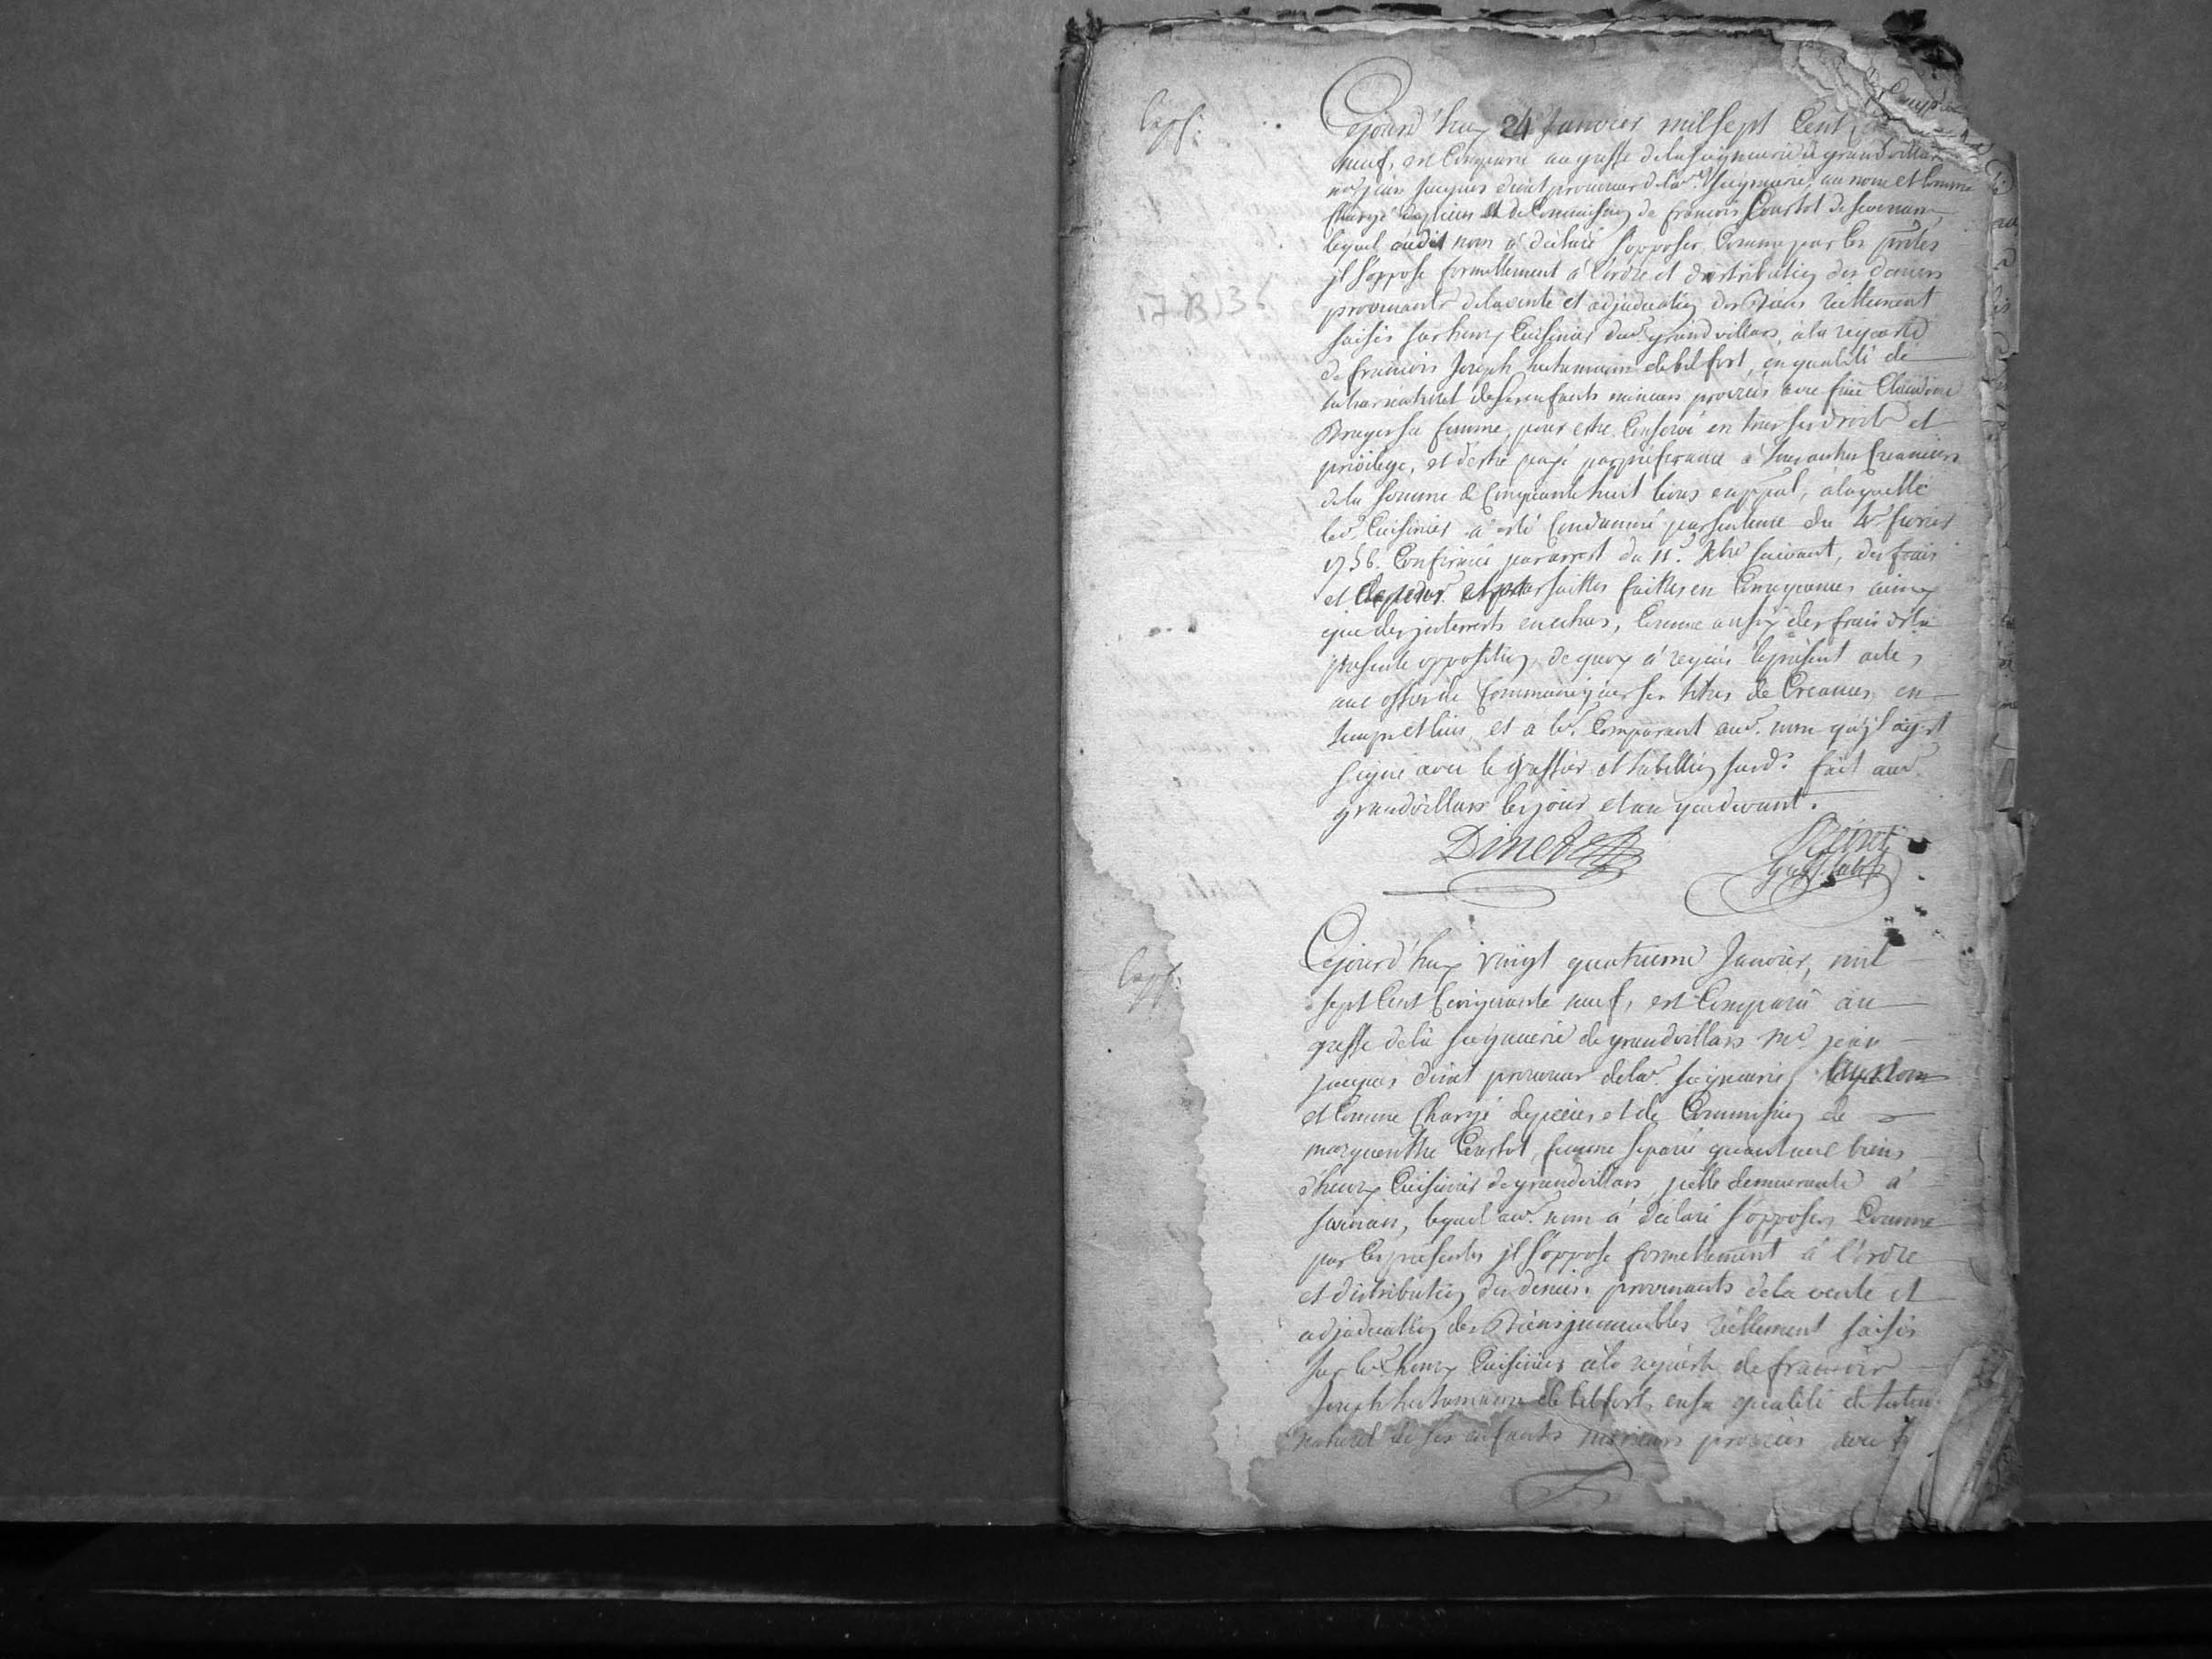 Cejourd'huy 24 Janvier mil sept Cent
neuf, est Comparu au greffe de la seigneurie de grandvillars
me jean jacques dinet procureur de lad. seigneurie, au nom et comme
Chargé de pieces et de Commission de francois Courtot de sevenans,
lequel audit nom a déclaré s'opposer, Comme par les pntes
jl s'oppose formellement à l'ordre et distribution des deniers
provenants de la vente et adjudication des Biens réellement
saisis sur henry Cuisinier dud. grandvillars, à la requete
de francois Joseph de belfort, en qualité de
tuteur naturel de ses enfants mineurs procréés avec feüe Claudine
sa femme, pour estre Conservé en tous ses droits et
privilege, et d'estre payé par préferance à tous autres Creanciers
de la somme de Cinquante huit livres en ppal, à laquelle
led. Cuisinier a esté Condamné par sentence du fevrier
1756. Confirmée par arrest du 11e suivant, des frais
et faittes en Consequence ainsy
que des jnterrests encchus, Comme aussy des frais de la
presente opposition, de quoy a requis le présent acte,
avec offre de Communiquer ses titres de Creances en
temps et lieu, et a led. Comparant aud. nom qu'jl agit
signé avec le greffier et tabellion susd. fait aud.
grandvillars les jour et an que devant.
Dinet
Cejourd'huy vingt quatrieme Janvier, mil
sept Cent Cinquante neuf, est Comparu au
greffe de la seigneurie de grandvillars me jean
jacques dinet procureur de lad. seigneurie, au nom
et Comme Chargé de pieces et de Commission de
margueritte Courtot, femme séparée quant aux biens
d'henry Cuisinier de grandvillars, jcelle demeurante à
sevenans, lequel aud. nom a déclaré s'opposer, Comme
par les presentes jl s'oppose formellement à l'ordre
et distribution des deniers provenants de la vente et
adjudication des Biens jmmeubles réellement saisis
sur led. henry Cuisinier à la requete de francois
Joseph de belfort, en sa qualité de tuteur
naturel de ses enfants mineurs procréés avec